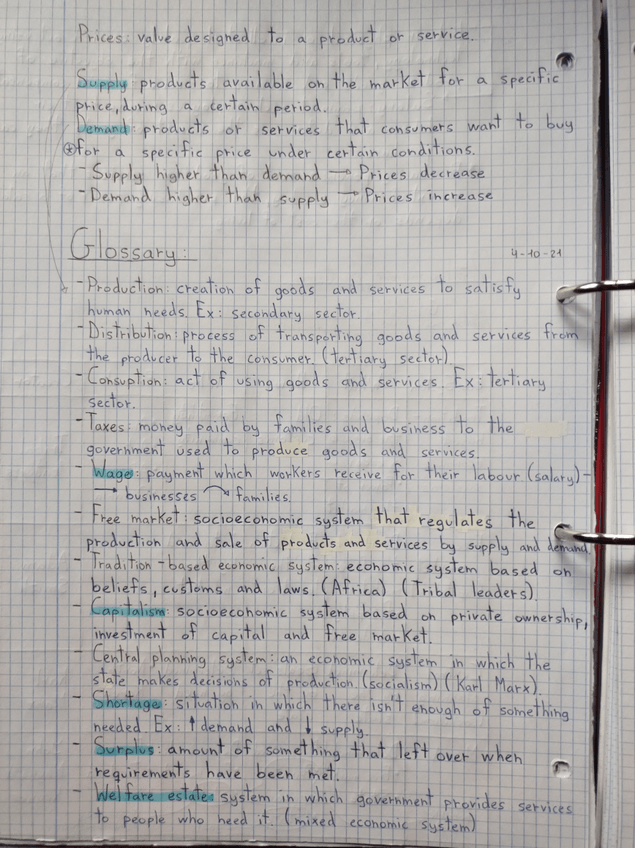 Prices: value designed to a product or service.
Supply products available on the market for a specific
price, during a certain period.
Demand: products or services that consumers want to buy
for a specific price under certain conditions.
- Supply higher than demand → Prices decrease
- Demand higher than supply → Prices increase
Glossary:
4-10-21
- Production: creation of goods and services to satisfy
human needs. Ex: secondary sector
- Distribution: process of transporting goods and services from
the producer to the consumer. (tertiary sector)
- Consuption: act of using goods and services. Ex: tertiary
sector.
- Taxes: money paid by families and business to the
government used to produce goods and services.
- Wage: payment which workers receive for their labour (salary) -
→ businesses → families.
- Free market: socioeconomic system that regulates the
production and sale of products and services by supply and demand
- Tradition-based economic system: economic system based on
beliefs, customs and laws. (Africa) (Tribal leaders)
- Capitalism: socioeconomic system based on private ownership,
investment of capital and free market.
- Central planning system: an economic system in which the
state makes decisions of production (socialism) (Karl Marx).
- Shortage: situation in which there isn't enough of something
needed. Ex: ↑ demand and ↓ supply.
- Surplus: amount of something that left over when
requirements have been met.
- Welfare estate: system in which government provides services
to people who need it. (mixed economic system)